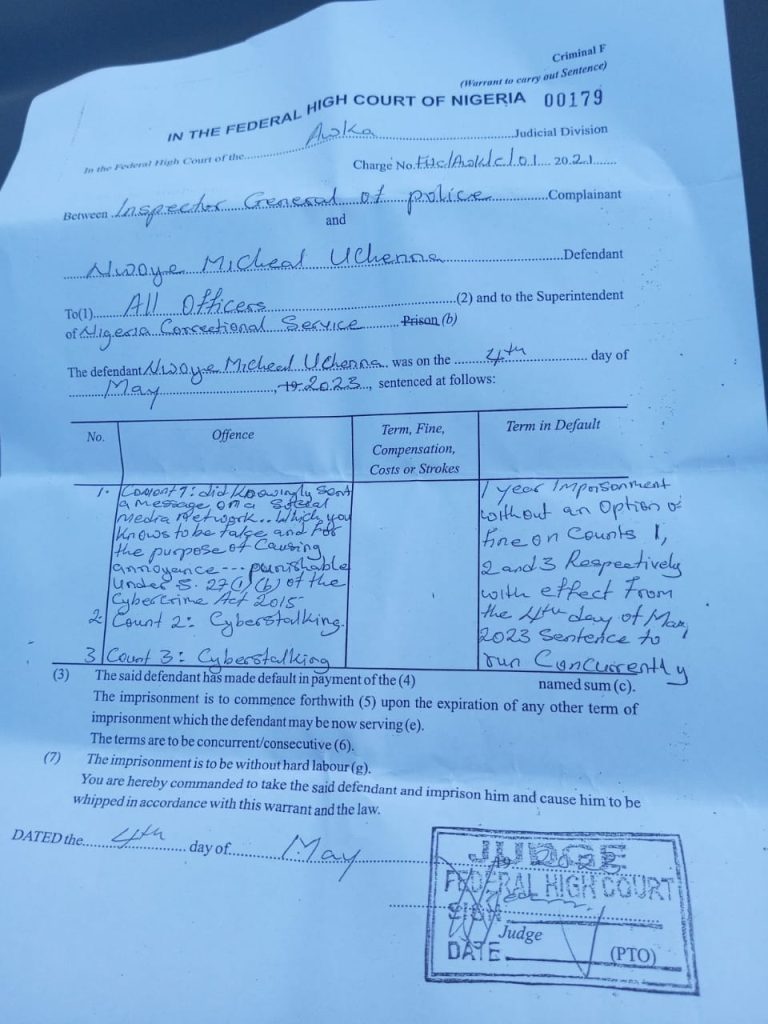 Criminal F
(Warrant to carry out Sentence)
IN THE FEDERAL HIGH COURT OF NIGERIA 00179
In the Federal High Court of the Awka Judicial Division
Charge No. FHC/Awk/C/01 2021
Between Inspector General of police Complainant
and
Nwoye Micheal Uchenna Defendant
To(1) All Officers (2) and to the Superintendent
of Nigeria Correctional Service Prison (b)
The defendant Nwoye Micheal Uchenna was on the 4th day of
May, 19 2023, sentenced at follows:
No.
Offence
Term, Fine,
Compensation,
Costs or Strokes
Term in Default
1. Count 1: did knowingly sent
a message on a social
media network.. which you
knows to be false and for
the purpose of causing
annoyance --- punishable
under S. 27(1)(b) of the
Cybercrime Act 2015
2 Count 2: Cyberstalking.
3 Count 3: Cyberstalking
1 year Imprisonment
without an Option of
fine on Counts 1,
2 and 3 Respectively
with effect From
the 4th day of May,
2023 Sentence to
run Concurrently
(3) The said defendant has made default in payment of the (4) named sum (c).
The imprisonment is to commence forthwith (5) upon the expiration of any other term of
imprisonment which the defendant may be now serving (e).
The terms are to be concurrent/consecutive (6).
(7) The imprisonment is to be without hard labour (g).
You are hereby commanded to take the said defendant and imprison him and cause him to be
whipped in accordance with this warrant and the law.
DATED the 4th day of May 19 2023
JUDGE
FEDERAL HIGH COURT
SIGN
Judge
DATE
(PTO)